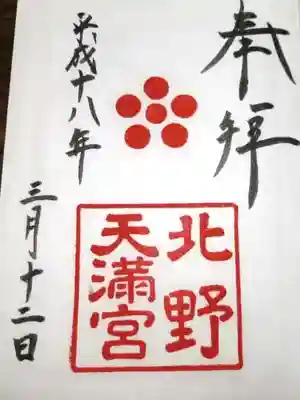 奉拝
北野
天満宮
平成十八年
三月十二日